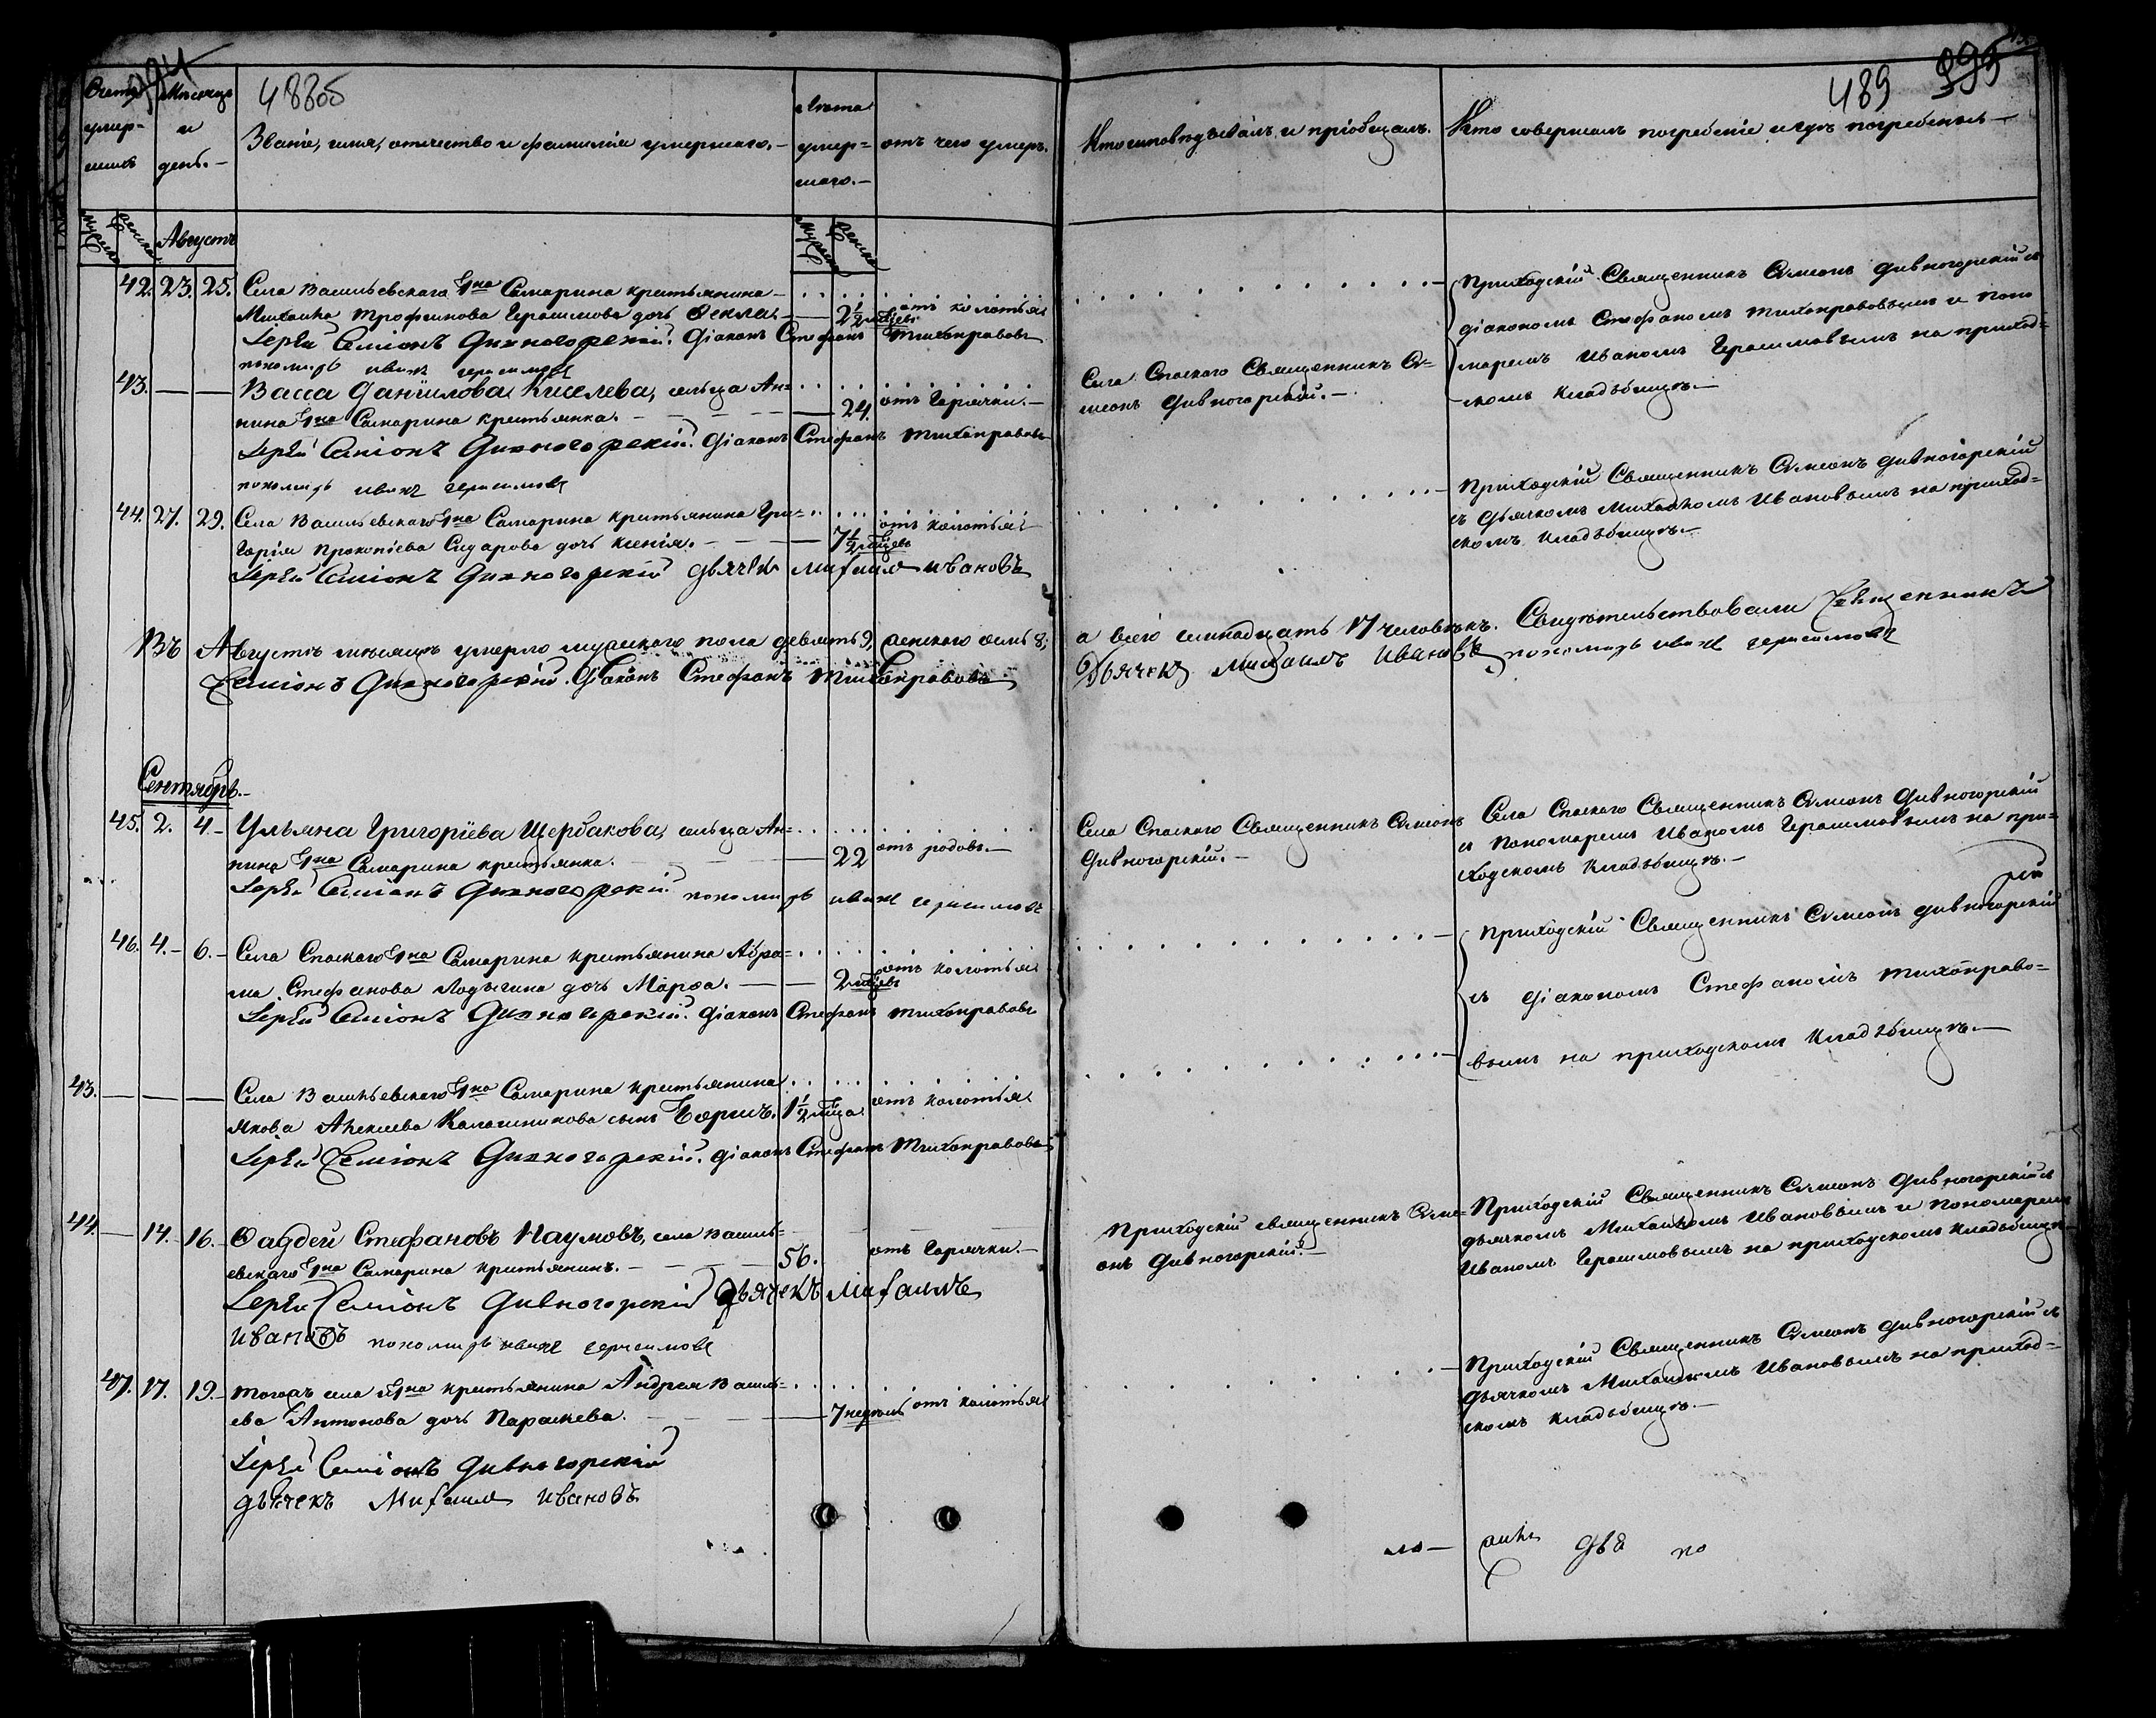 394
488об
489 395
Счетъ умер-шихъ
Мѣсяцъ и день.
Званіе, имя, отчество и фамилія умершаго.
Лѣта умер=шаго.
отъ чего умеръ.
Кто исповѣдывалъ и пріобщалъ.
Кто совершалъ погребеніе и гдѣ погребены
Мужеска
Женска
Августъ
Мужеска
Женска
42. 23. 25. Села Васильевскаго Гна Самарина крестьянина
Михаила Трофимова Герасимова дочь Ѳекла. 2½ мѣсцевъ отъ колотья
Іерей Симіонъ Дивногорскій. Діаконъ Стефанъ Тихонравовъ
пономарь иванъ герасимовъ
Приходскій Священникъ Симеонъ Дивногорскій съ
діакономъ Стефаномъ Тихонравовымъ и поно
маремъ Иваномъ Герасимовымъ на приход=
скомъ кладбищѣ.
43. Васса Даніилова Киселева, сельца Ан=
нина Гна Самарина крестьянка. 24. отъ Горячки.
Іерей Симіонъ Дивногорскій. Діаконъ Стефанъ Тихонравовъ
пономарь иванъ герасимовъ
Села Спаскаго Священникъ Си=
меонъ Дивногорскій.
44. 27. 29. Села Васильевскаго Гна Самарина крестьянина Гри=
горія Прокопіева Сидарова дочь Ксенія. 7½ мѣсцевъ отъ колотья
Іерей Симіонъ Дивногорскій дьячекъ михаилъ ивановъ
Приходскій Священникъ Симеонъ Дивногорскій
съ дьячкомъ Михаиломъ Ивановымъ на приход=
скомъ кладбищѣ.
Въ Августѣ мѣсяцѣ умерло мужескаго пола девять 9, женскаго осмь 8;
а всего семнадцать 17 человѣкъ. Свидѣтельствовали Священникъ
Симіонъ Дивногорскій. Діаконъ Стефанъ Тихонравовъ
Дьячекъ Михаилъ Ивановъ, пономарь иванъ герасимовъ
Сентябрь.
45. 2. 4. Ульяна Григоріева Щербакова, сельца Ан=
нина Гна Самарина крестьянка. 22 отъ родовъ.
Іерей Симіонъ Дивногорскій пономарь иванъ герасимовъ
Села Спаскаго Священникъ Симеонъ
Дивногорскій.
Села Спаскаго Священникъ Симеонъ Дивногорскій
и Пономаремъ Иваномъ Герасимовымъ на при=
ходскомъ кладбищѣ.
46. 4. 6. Села Спаскаго Гна Самарина крестьянина Абра=
ма Стефанова Лодыгина дочь Марѳа. 2 мѣсцевъ отъ колотья
Іерей Симіонъ Дивногорскій. Діаконъ Стефанъ Тихонравовъ
Приходскій Священникъ Симеонъ Дивногорскій
съ діакономъ Стефаномъ Тихонраво=
вымъ на приходскомъ кладбищѣ.
43. Села Васильевскаго Гна Самарина крестьянина
Якова Алексеева Калашникова сынъ Борисъ. 1½ мѣсца отъ колотья
Іерей Симіонъ Дивногорскій. Діаконъ Стефанъ Тихонравовъ
44. 14. 16. Ѳаддей Стефановъ Наумовъ, села Василь=
евскаго Гна Самарина крестьянинъ. 56. отъ Горячки.
Іерей Симіонъ Дивногорскій Дьячекъ Михаилъ
Ивановъ пономарь иванъ герасимовъ
Приходскій священникъ Симе=
онъ Дивногорскій.
Приходскій Священникъ Симеонъ Дивногорскій съ
дьячкомъ Михаиломъ Ивановымъ и пономаремъ
Иваномъ Герасимовымъ на приходскомъ кладбищѣ
47. 17. 19. Тогожъ села Гна крестьянина Андрея Василь=
ева Антонова дочь Параскева. 7 недѣль отъ колотья
Іерей Симіонъ Дивногорскій
дьячекъ Михаилъ Ивановъ
Приходскій Священникъ Симеонъ Дивногорскій съ
дьячкомъ Михаиломъ Ивановымъ на приход=
скомъ кладбищѣ.
по